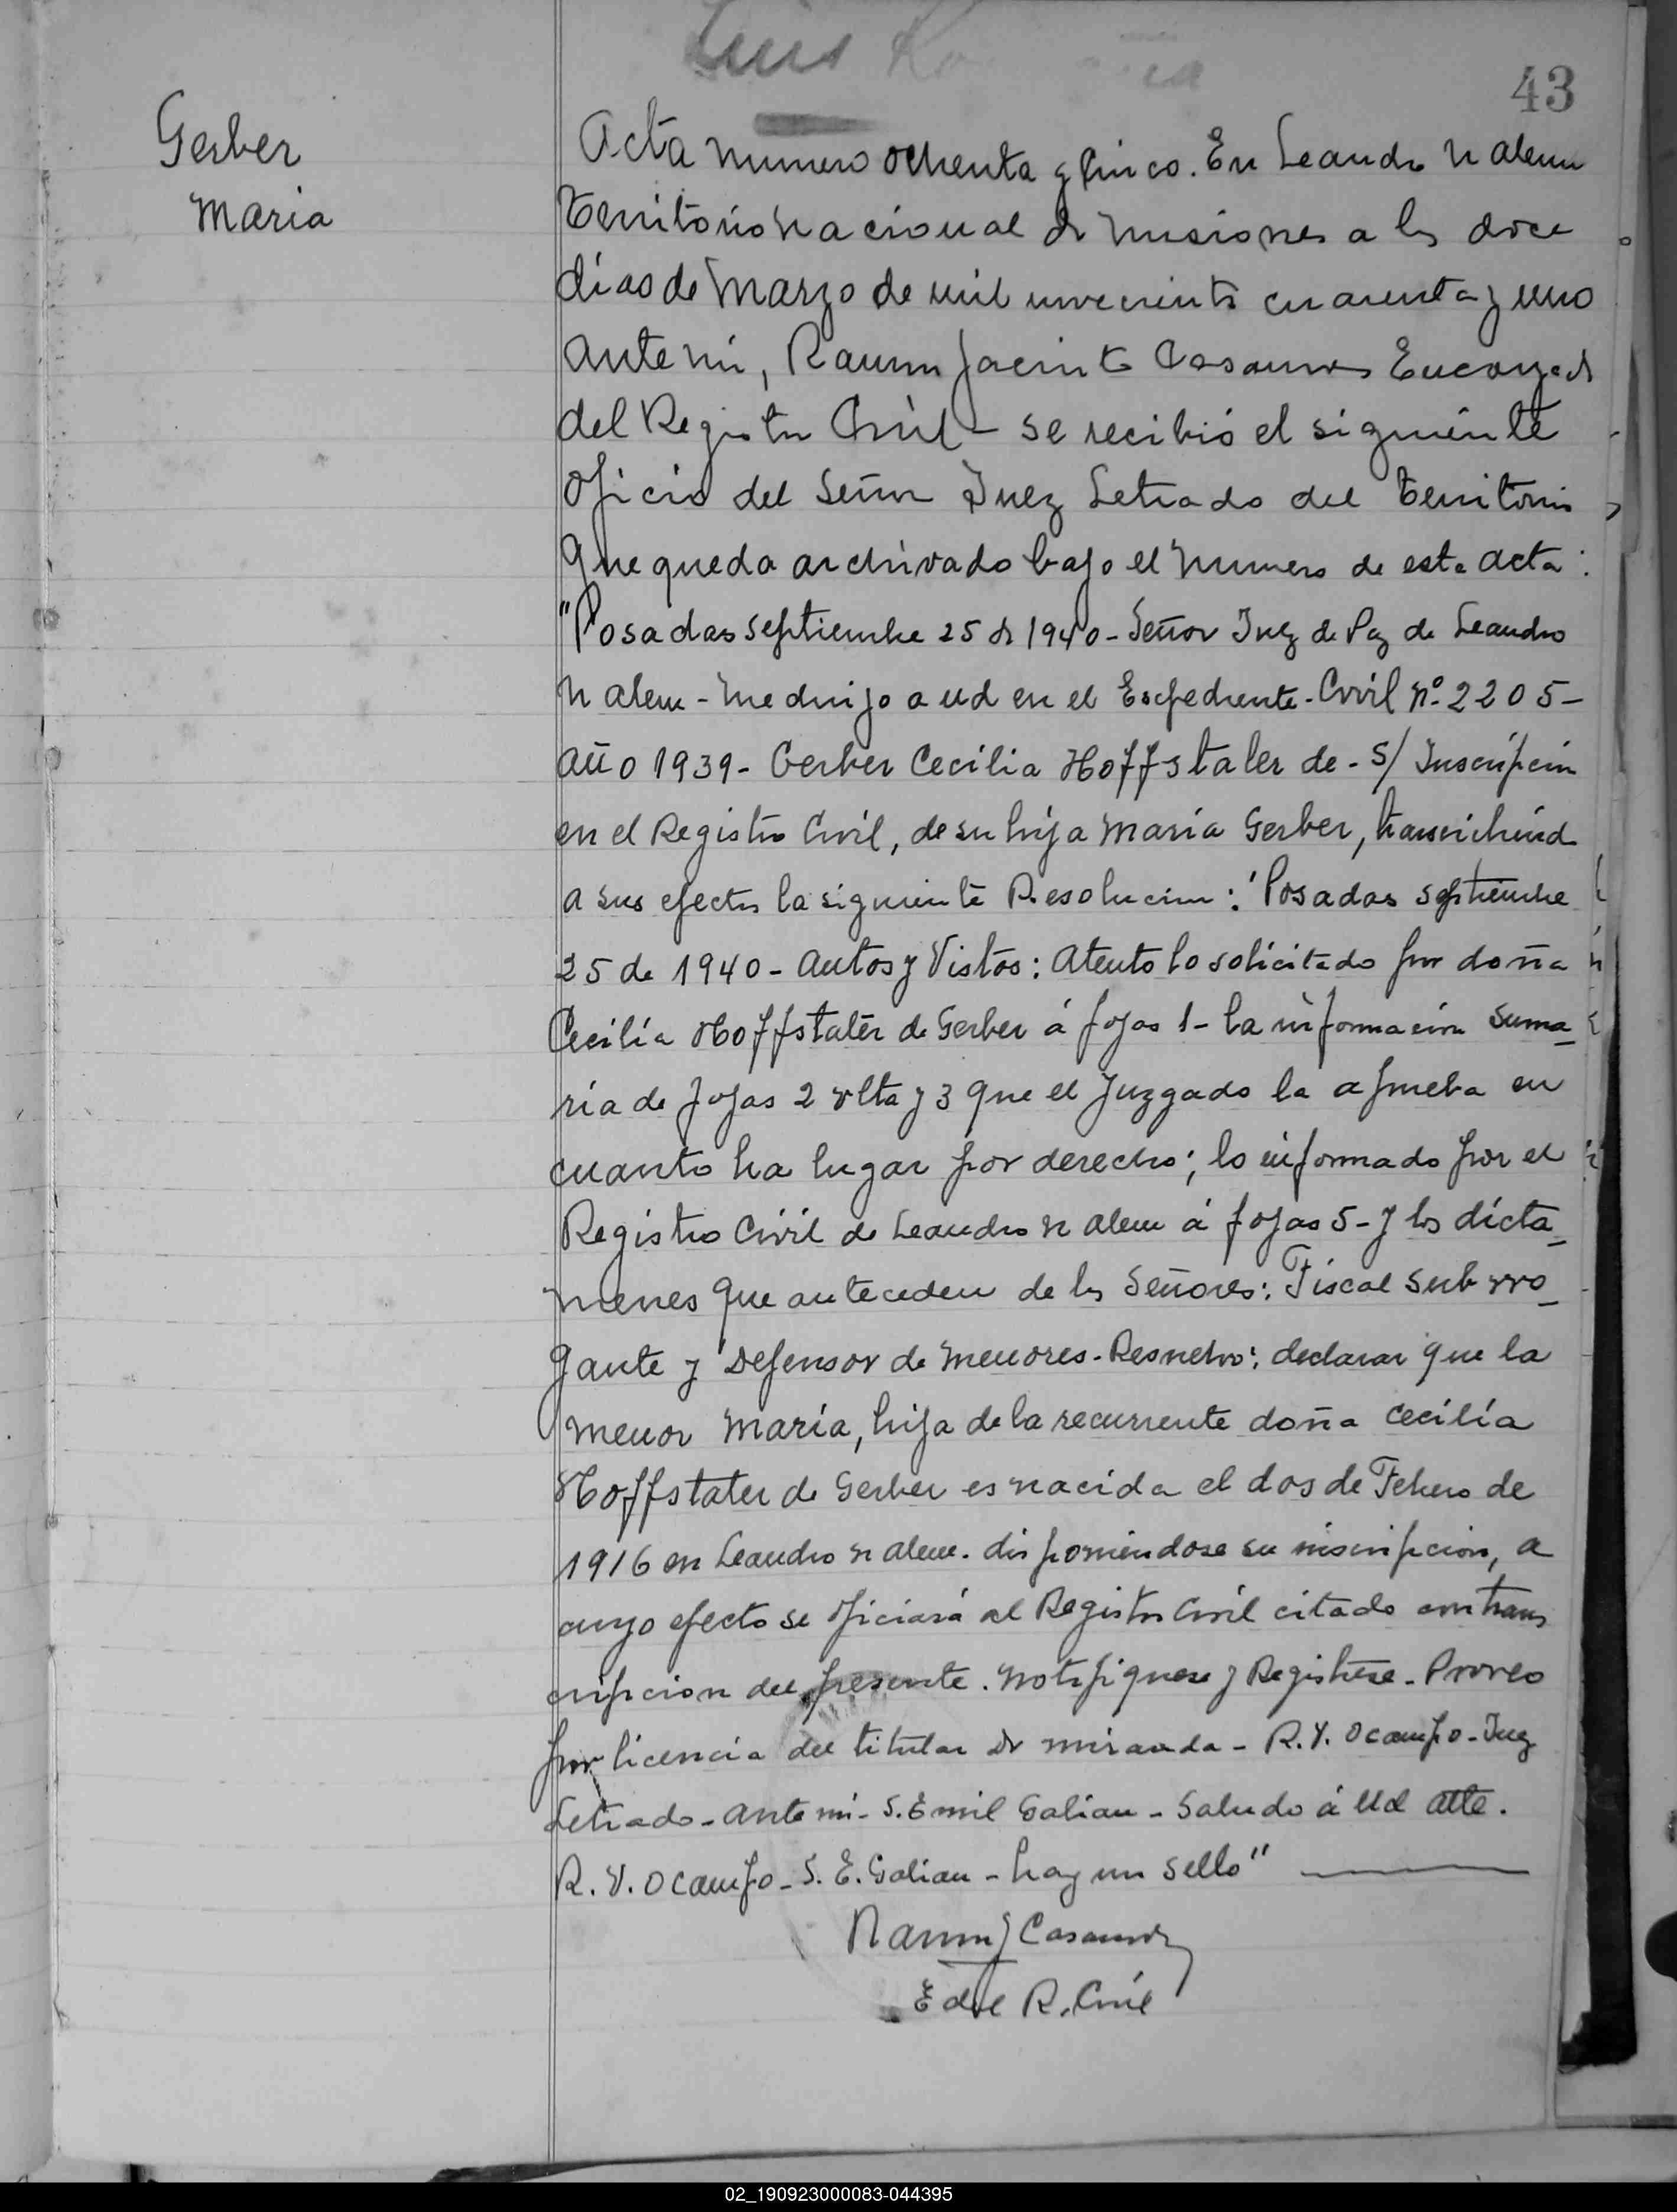 Luis
43
Gerber
Maria
Acta numero ochenta y cinco. En Leandro N Alem
Territorio Nacional de Misiones a los doce
días de Marzo de mil novecientos cuarenta y uno
Ante mi, Ramon Jacinto Casanova Encargado
del Registro Civil - se recibió el siguiente
Oficio del Señor Juez Letrado del Territorio
que queda archivado bajo el numero de esta acta:
"Posadas Septiembre 25 de 1940 - Señor Juez de Paz de Leandro
N Alem - Me dirijo a Ud en el Expediente - Civil Nº 2205 -
Año 1939 - Gerber Cecilia Hoffstater de - S/ Inscripcion
en el Registro Civil, de su hija Maria Gerber, transcribiendo
a sus efectos la siguiente Resolucion: 'Posadas Septiembre
25 de 1940 - Autos y Vistos: Atento lo solicitado por doña
Cecilia Hoffstater de Gerber á fojas 1 - la información suma_
ria de fojas 2 vlta y 3 que el Juzgado la aprueba en
cuanto ha lugar por derecho; lo informado por el
Registro Civil de Leandro N Alem á fojas 5 - y los dicta_
menes que anteceden de los Señores: Fiscal Subrro_
gante y Defensor de Menores - Resuelvo: declarar que la
menor María, hija de la recurrente doña Cecilia
Hoffstater de Gerber es nacida el dos de Febrero de
1916 en Leandro N Alem. disponiendose su inscripcion, a
cuyo efecto se oficiará al Registro Civil citado con trans
cripcion del presente. Notifiquese y Registrese - Proveo
por licencia del titular Dr Miranda - R. V. Ocampo - Juez
Letrado - Ante mi - S. Emil Galian - Saludo á Ud Atte.
R. V. Ocampo - S. E. Galian - hay un sello"
Ramon J Casanova
E del R. Civil
02_190923000083-044395